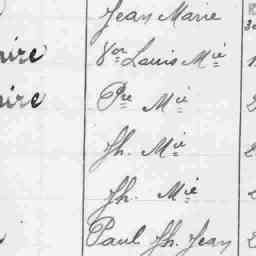 Jean Marie
Vor Louis Mie
Pre Mie
Jh. Mie
Jh. Mie
Paul Jh. Jean